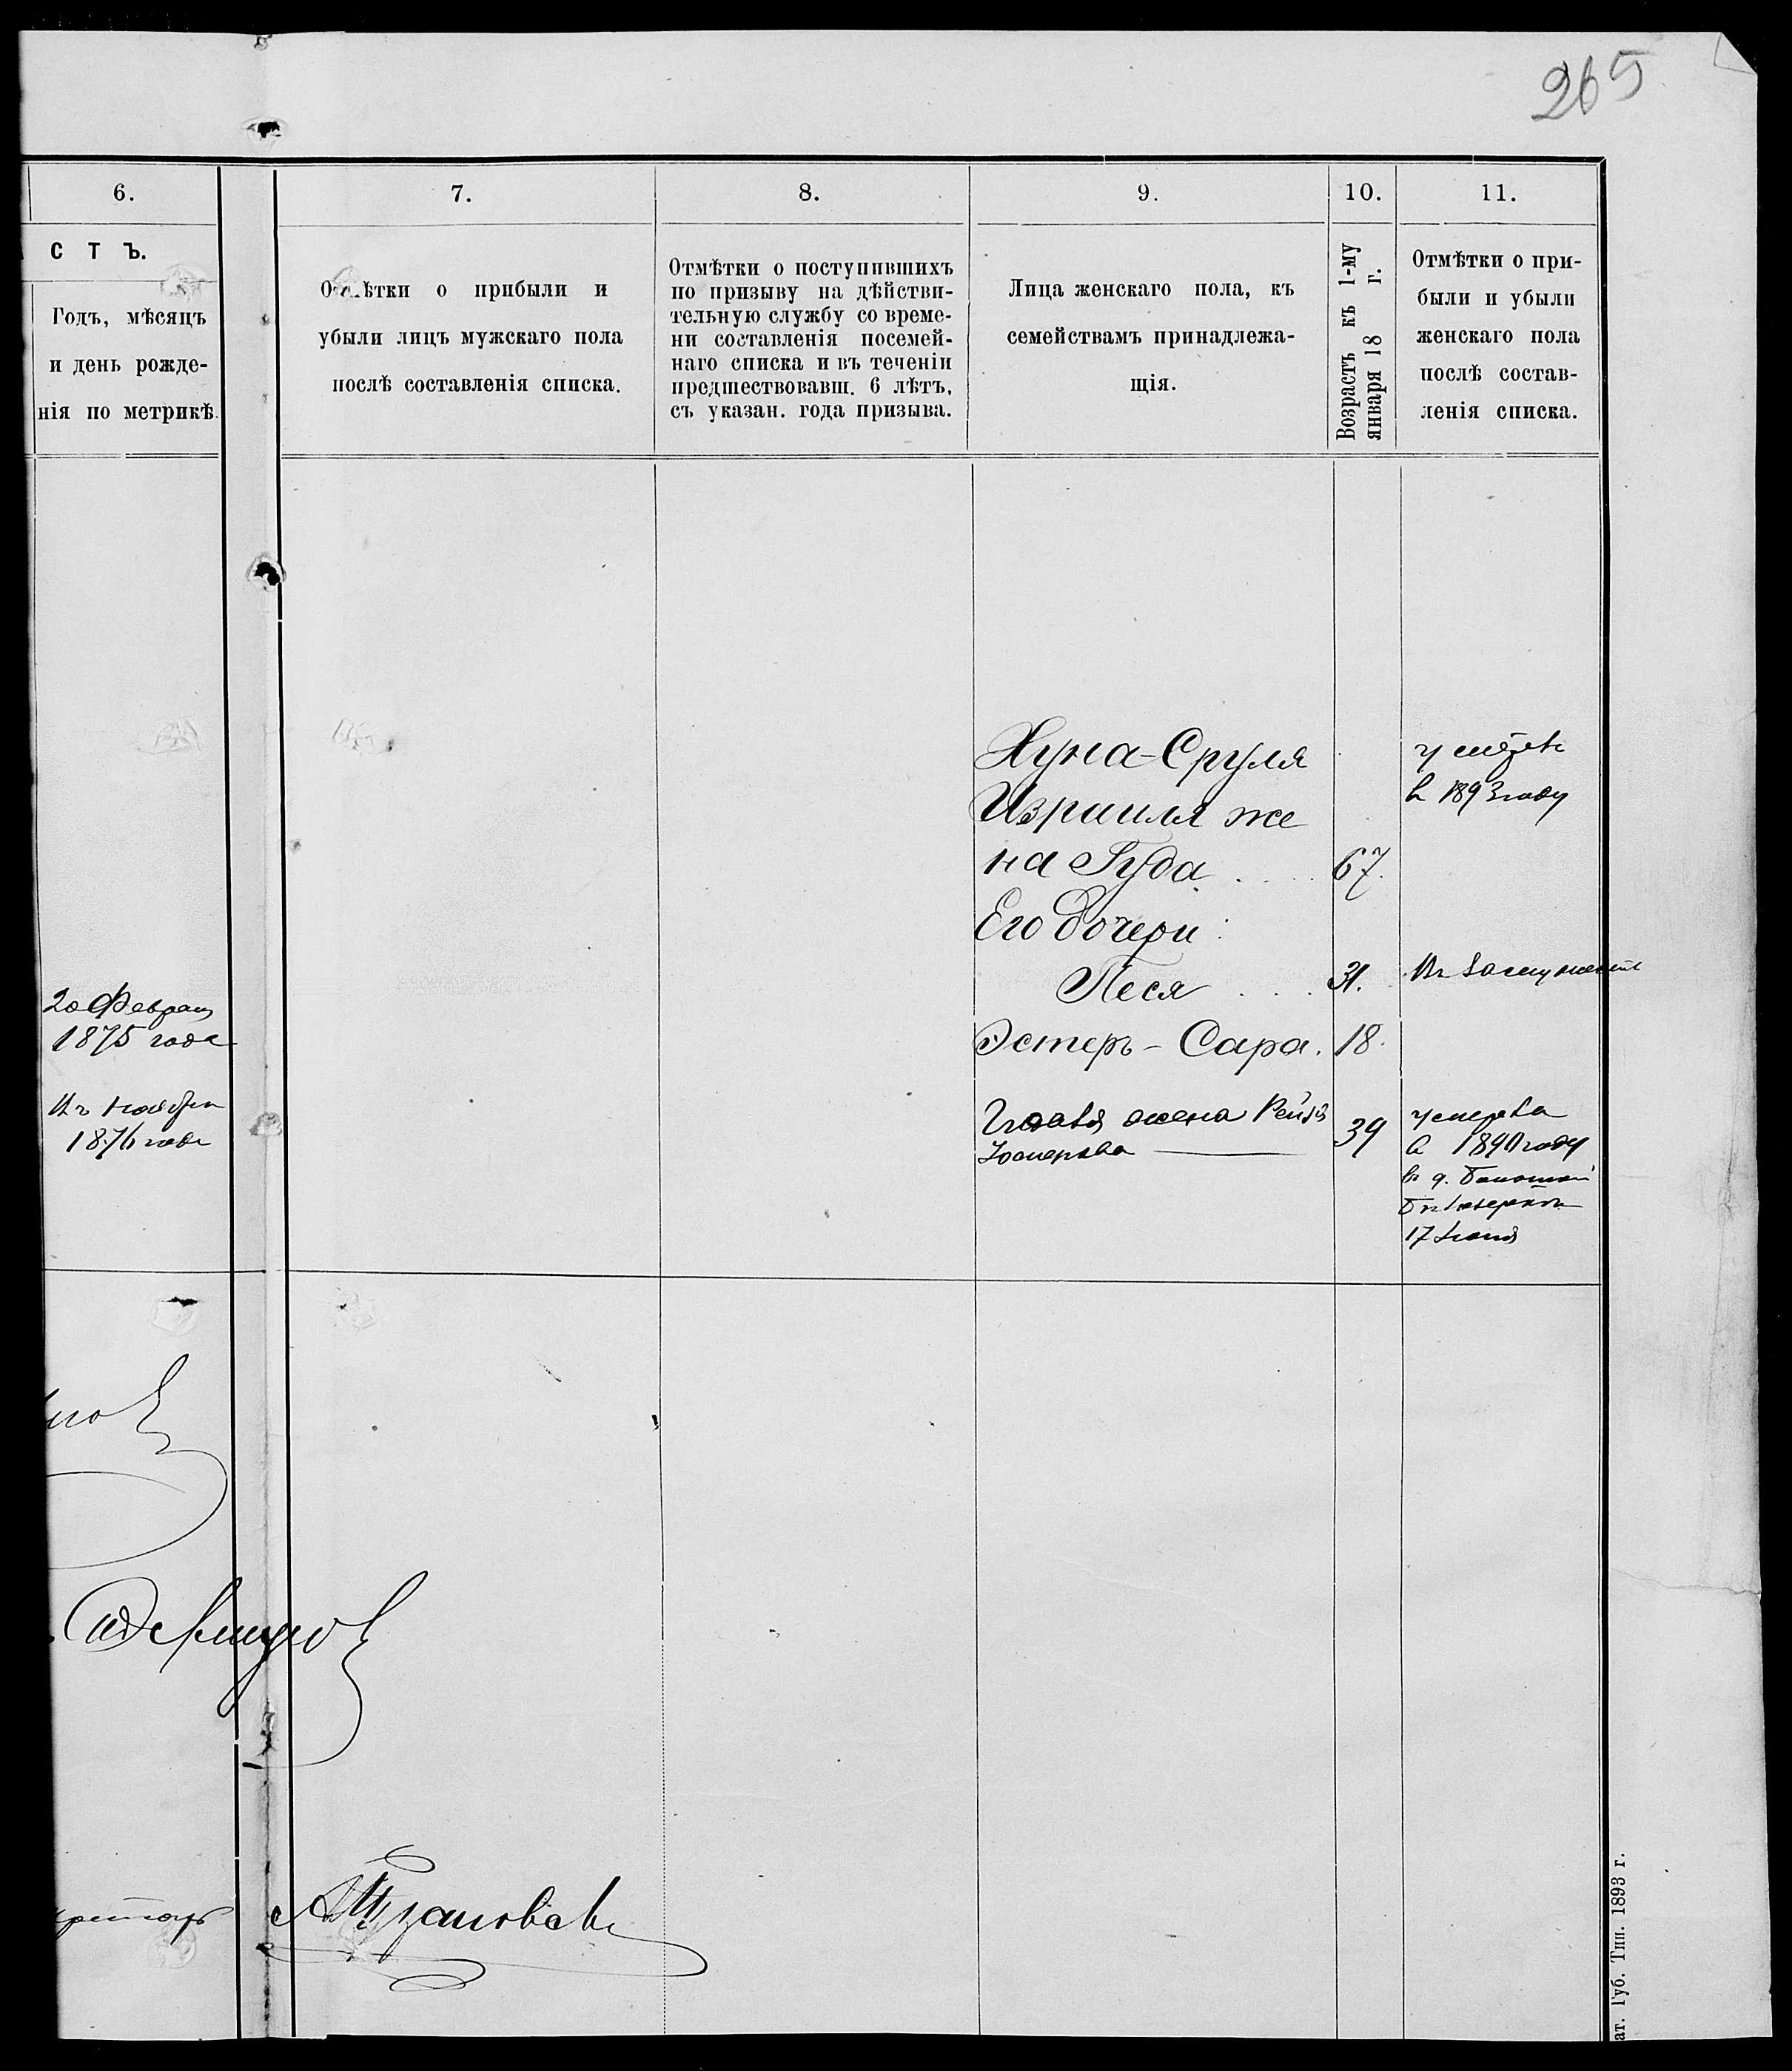 265
6.
7.
8.
9.
10.
11.
С Т Ъ.
Годъ, мѣсяцъ
и день рожде-
нія по метрикѣ.
Отмѣтки о прибыли и
убыли лицъ мужскаго пола
послѣ составленія списка.
Отмѣтки о поступившихъ
по призыву на дѣйстви-
тельную службу со време-
ни составленія посемей-
наго списка и въ теченіи
предшествовавш. 6 лѣтъ,
съ указан. года призыва.
Лица женскаго пола, къ
семействамъ принадлежа-
щія.
Возрастъ къ 1-му
января 18 г.
Отмѣтки о при-
были и убыли
женскаго пола
послѣ состав-
ленія списка.
Хуна-Сруля
Израиля же
на Гуда 67.
Его дочери:
Песя 31.
Эстеръ-Сара. 18.
жена Рейзя
39
въ 1893 году
Въ замужествѣ
умерла
в 1890 году
17 Іюня
20 Февраля
1875 года
Ноября
1876 года
ат. Губ. Тип. 1893 г.